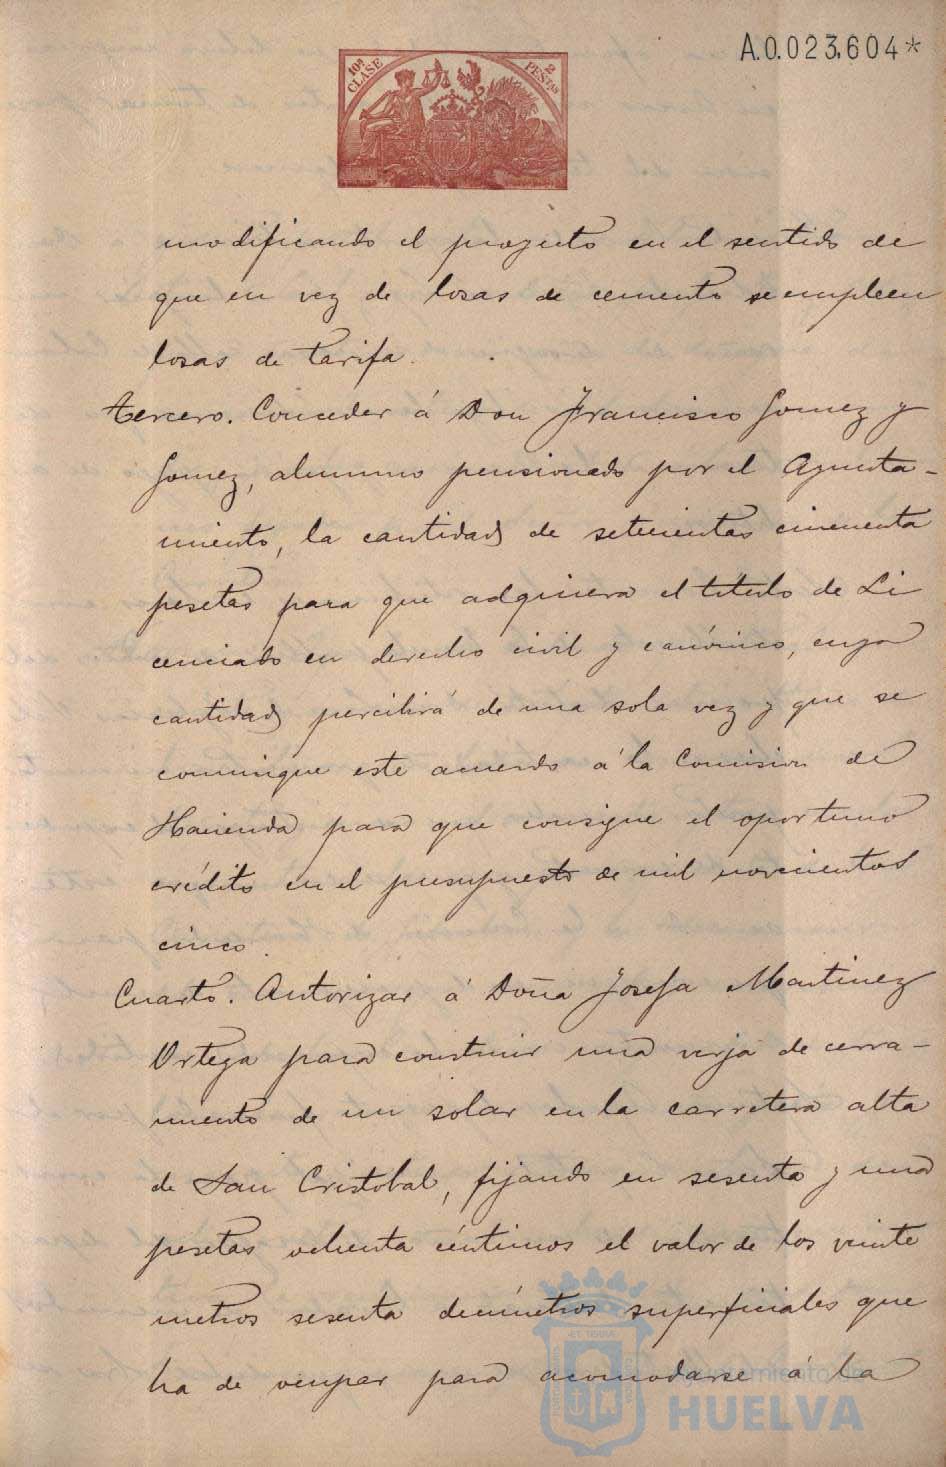 A.0.023,604*
10ª CLASE
2 PESTAS
modificando el proyecto en el sentido de
que en vez de losas de cemento se empleen
losas de tarifa.
tercero. Conceder á Don Francisco Gomez y
Gomez, alumno pensionado por el Ayunta-
miento, la cantidad de setecientas cincuenta
pesetas para que adquiera el titulo de Li
cenciado en derecho civil y canónico, cuya
cantidad percibirá de una sola vez y que se
comunique este acuerdo á la Comision de
Hacienda para que consigne el oportuno
crédito en el presupuesto de mil novecientos
cinco.
Cuarto. Autorizar á Doña Josefa Martinez
Ortega para construir una verja de cerra-
miento de un solar en la carretera alta
de San Cristobal, fijando en sesenta y una
pesetas ochenta céntimos el valor de los veinte
metros sesenta decímetros superficiales que
ha de ocupar para acomodarse á la
Ayuntamiento de
HUELVA